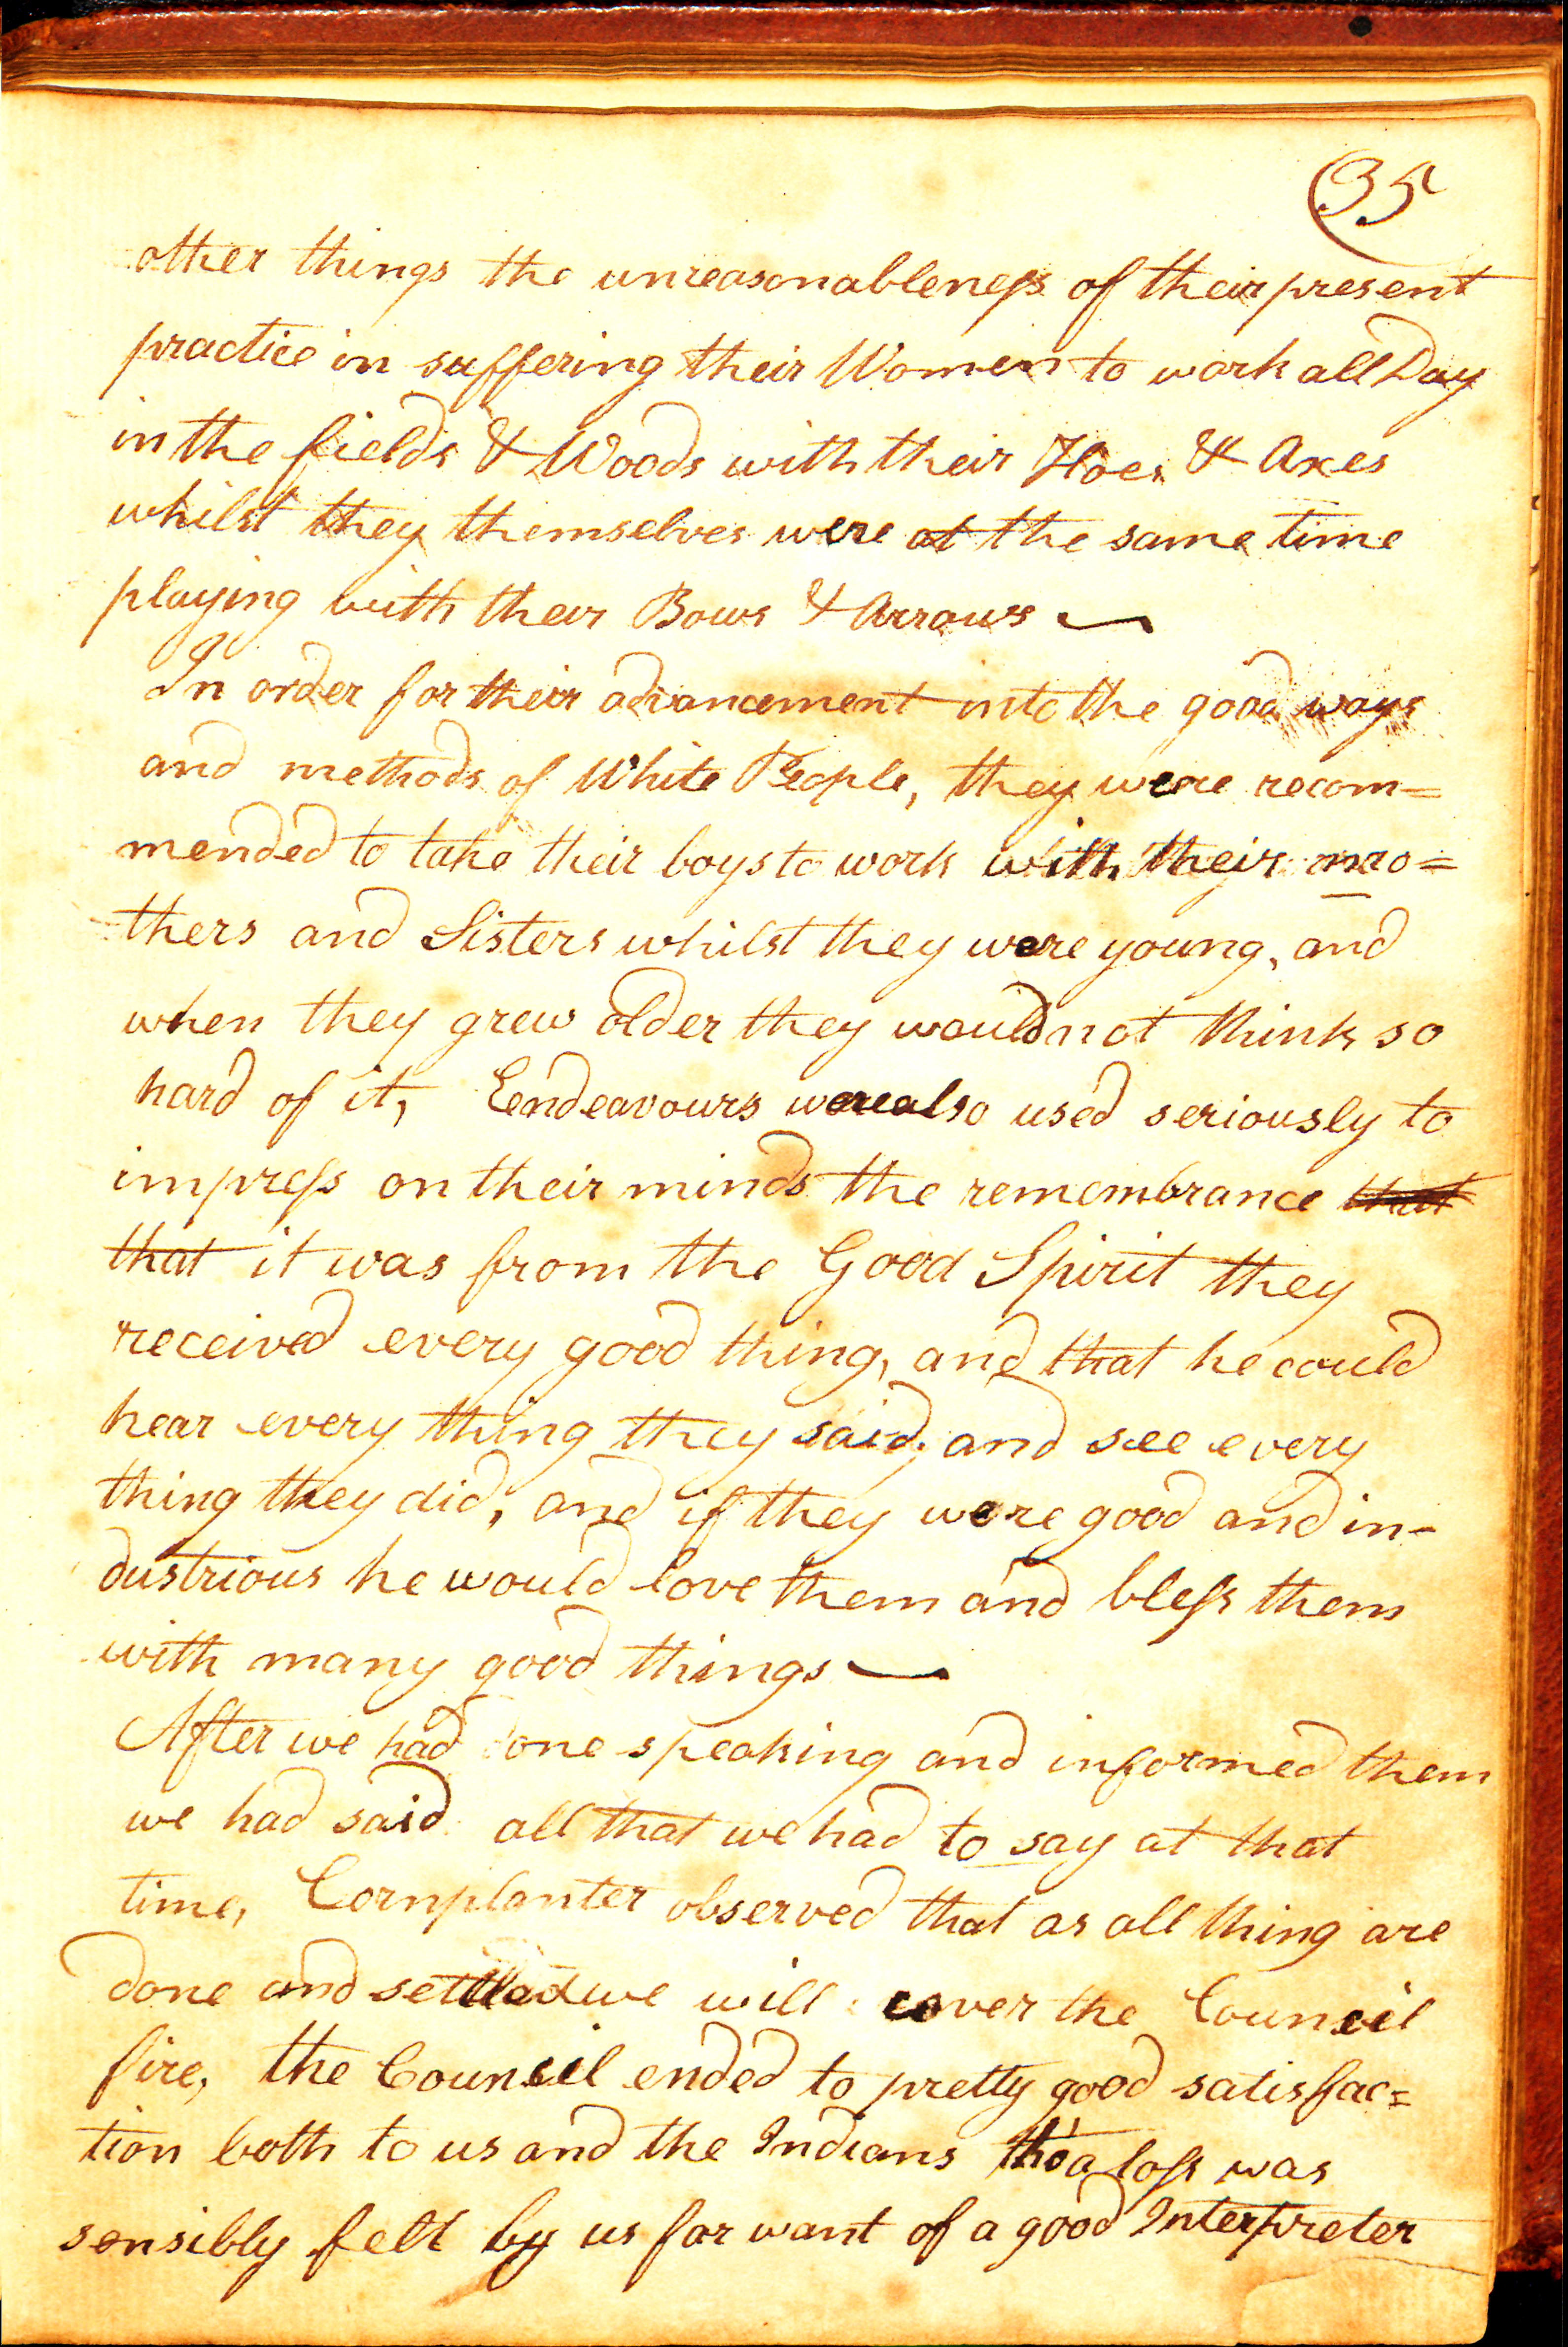 35
other things the unreasonableness of their present
practice in suffering their Women to work all Day
in the fields & Woods with their Hoes & Axes
whilst they themselves were at the same time
playing with their Bows & Arrows —
In order for their advancement into the good ways
and methods of White People, they were recom=
mended to take their boys to work with their mo=
thers and Sisters whilst they were young, and
when they grew older they would not think so
hard of it, Endeavours were also used seriously to
impress on their minds the remembrance that
that it was from the Good Spirit they
received every good thing, and that he could
hear every thing they said, and see every
thing they did, and if they were good and in-
dustrious he would love them and bless them
with many good things —
After we had done speaking and informed them
we had said all that we had to say at that
time, Cornplanter observed that as all thing are
done and settled we will cover the Council
fire, the Council ended to pretty good satisfac=
tion both to us and the Indians tho' a loss was
sensibly felt by us for want of a good Interpreter